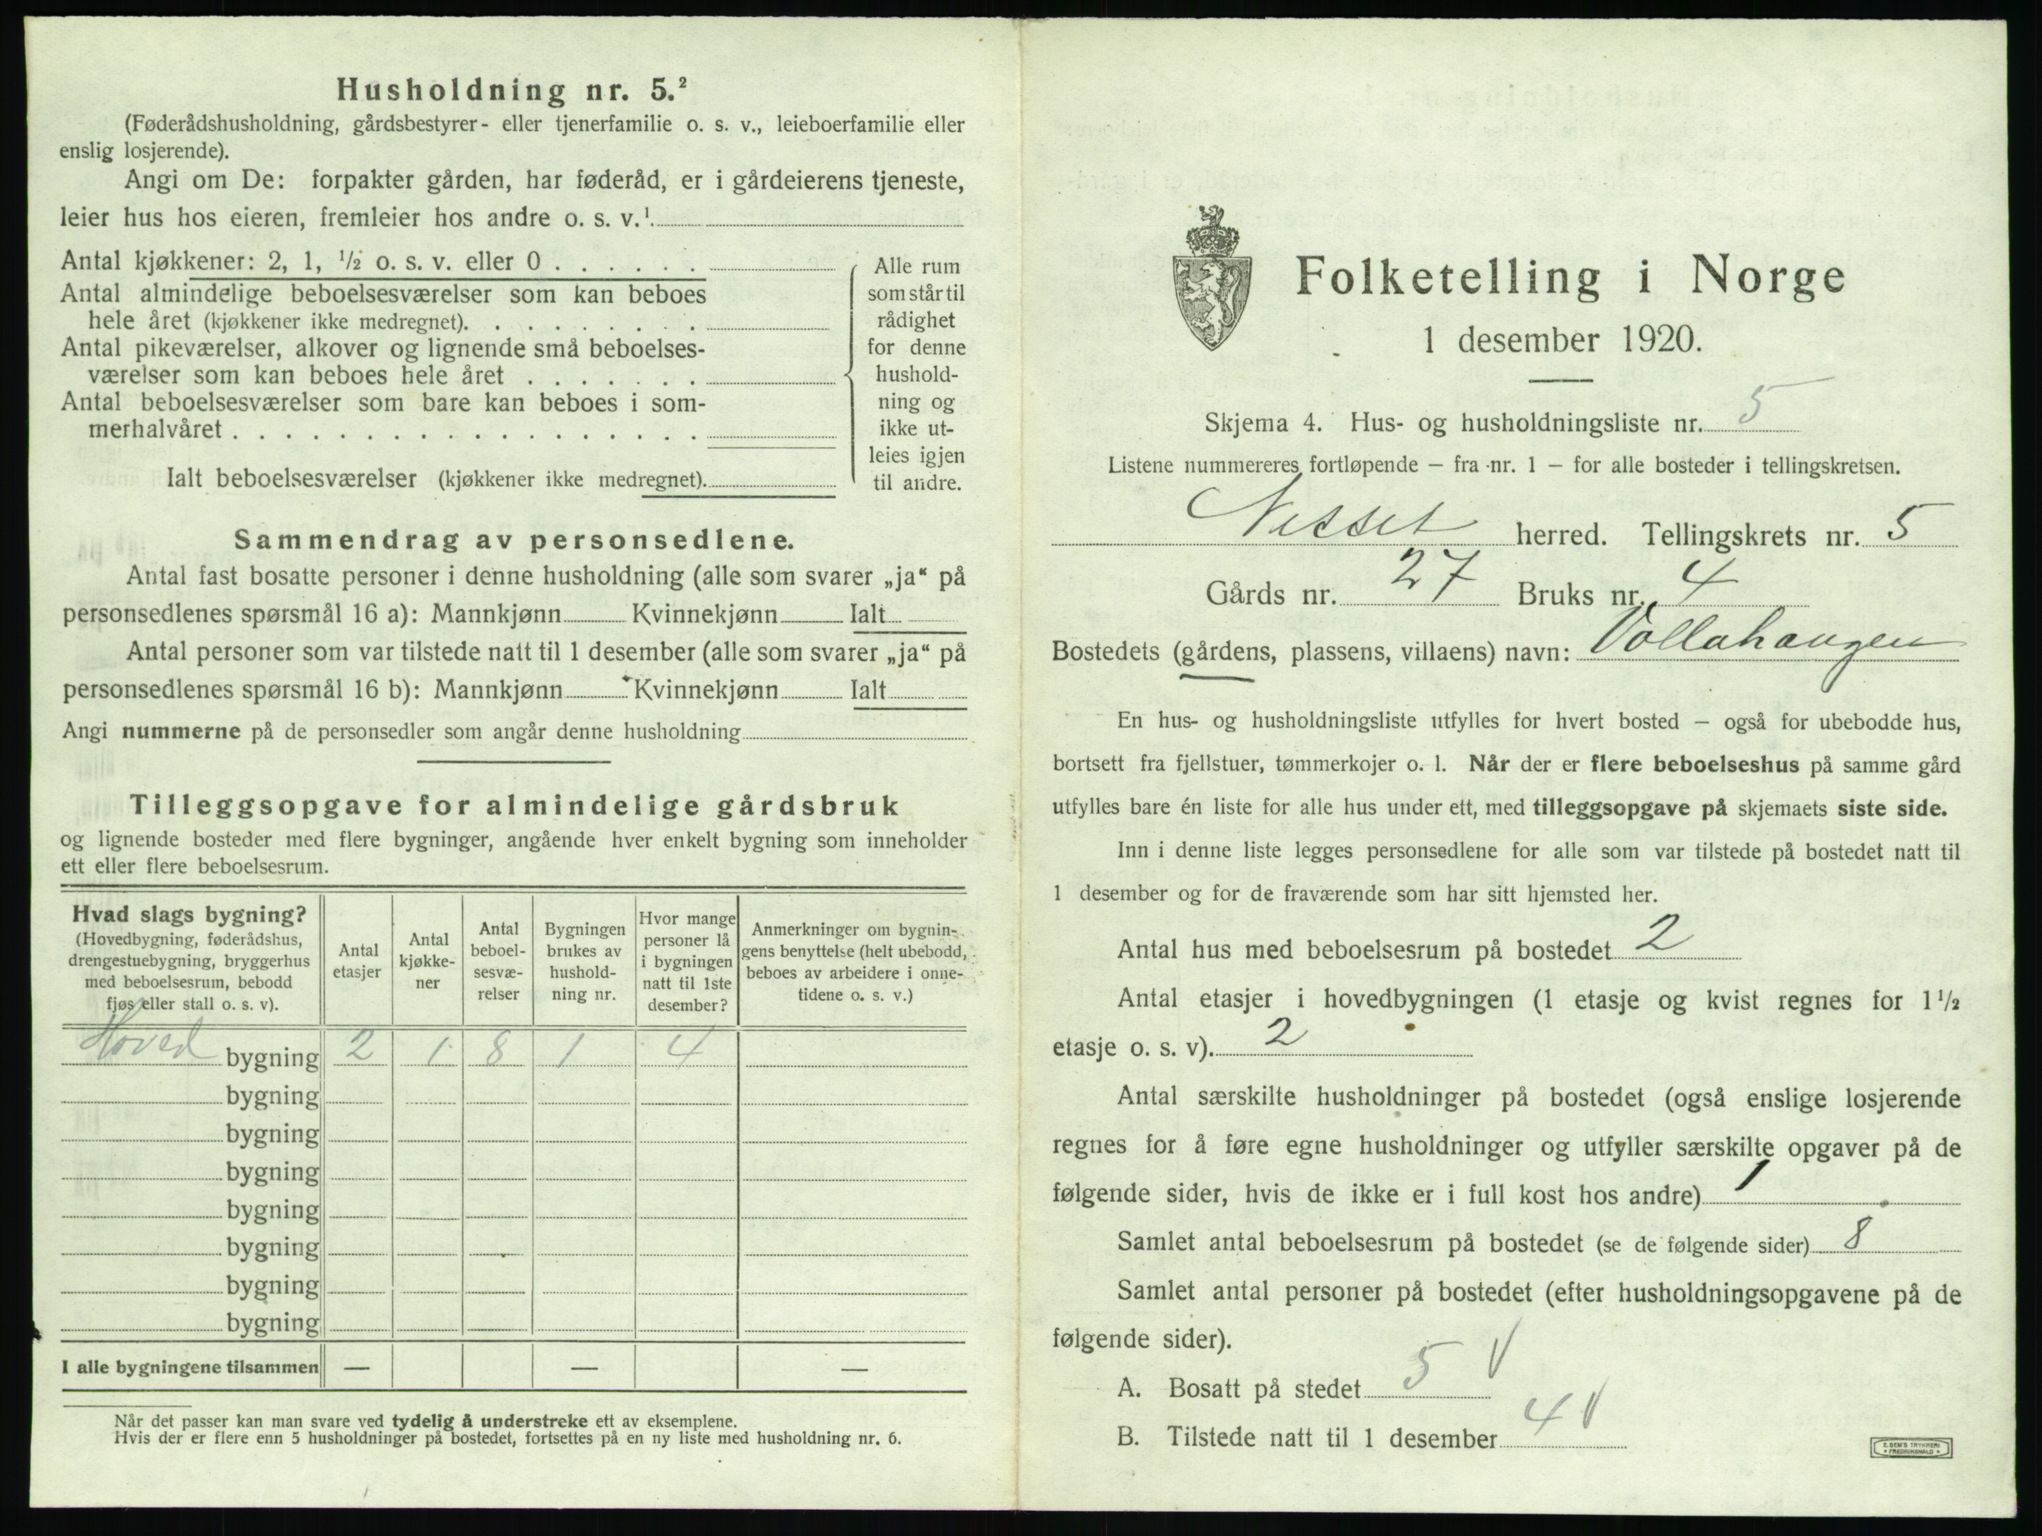 Husholdning nr. 5.²
(Føderådshusholdning, gårdsbestyrer- eller tjenerfamilie o. s. v., leieboerfamilie eller
enslig losjerende).
Angi om De: forpakter gården, har føderåd, er i gårdeierens tjeneste,
leier hus hos eieren, fremleier hos andre o. s. v.¹
Antal kjøkkener: 2, 1, ½ o. s. v. eller 0 . . . . . .
Antal almindelige beboelsesværelser som kan beboes
hele året (kjøkkener ikke medregnet). . . . . . . . .
Antal pikeværelser, alkover og lignende små beboelses-
værelser som kan beboes hele året . . . . . . .
Antal beboelsesværelser som bare kan beboes i som-
merhalvåret . . . . . . . . . . . . . . . . . .
Ialt beboelsesværelser (kjøkkener ikke medregnet).
Alle rum
som står til
rådighet
for denne
hushold-
ning og
ikke ut-
leies igjen
til andre.
Sammendrag av personsedlene.
Antal fast bosatte personer i denne husholdning (alle som svarer „ja“ på
personsedlenes spørsmål 16 a): Mannkjønn Kvinnekjønn Ialt
Antal personer som var tilstede natt til 1 desember (alle som svarer „ja“ på
personsedlenes spørsmål 16 b): Mannkjønn Kvinnekjønn Ialt
Angi nummerne på de personsedler som angår denne husholdning
Tilleggsopgave for almindelige gårdsbruk
og lignende bosteder med flere bygninger, angående hver enkelt bygning som inneholder
ett eller flere beboelsesrum.
Hvad slags bygning?
(Hovedbygning, føderådshus,
drengestuebygning, bryggerhus
med beboelsesrum, bebodd
fjøs eller stall o. s. v).
Antal
etasjer
Antal
kjøkke-
ner
Antal
beboel-
sesvæ-
relser
Bygningen
brukes av
hushold-
ning nr.
Hvor mange
personer lå
i bygningen
natt til 1ste
desember?
Anmerkninger om bygnin-
gens benyttelse (helt ubebodd,
beboes av arbeidere i onne-
tidene o. s. v.)
Hoved bygning 2 1 8 1 4
bygning
bygning
bygning
bygning
bygning
bygning
bygning
I alle bygningene tilsammen — — —
Når det passer kan man svare ved tydelig å understreke ett av eksemplene.
Hvis der er flere enn 5 husholdninger på bostedet, fortsettes på en ny liste med husholdning nr. 6.
Folketelling i Norge
1 desember 1920.
Skjema 4. Hus- og husholdningsliste nr. 5
Listene nummereres fortløpende — fra nr. 1 — for alle bosteder i tellingskretsen.
Nesset herred. Tellingskrets nr. 5
Gårds nr. 27 Bruks nr. 4
Bostedets (gårdens, plassens, villaens) navn: Vollahaugen
En hus- og husholdningsliste utfylles for hvert bosted — også for ubebodde hus,
bortsett fra fjellstuer, tømmerkojer o. l. Når der er flere beboelseshus på samme gård
utfylles bare én liste for alle hus under ett, med tilleggsopgave på skjemaets siste side.
Inn i denne liste legges personsedlene for alle som var tilstede på bostedet natt til
1 desember og for de fraværende som har sitt hjemsted her.
Antal hus med beboelsesrum på bostedet 2
Antal etasjer i hovedbygningen (1 etasje og kvist regnes for 1½
etasje o. s. v). 2
Antal særskilte husholdninger på bostedet (også enslige losjerende
regnes for å føre egne husholdninger og utfyller særskilte opgaver på de
følgende sider, hvis de ikke er i full kost hos andre) 1
Samlet antal beboelsesrum på bostedet (se de følgende sider) 8
Samlet antal personer på bostedet (efter husholdningsopgavene på de
følgende sider).
A. Bosatt på stedet 5 V
B. Tilstede natt til 1 desember 4 V
E. SEM'S TRYKKERI
FREDRIKSHALD